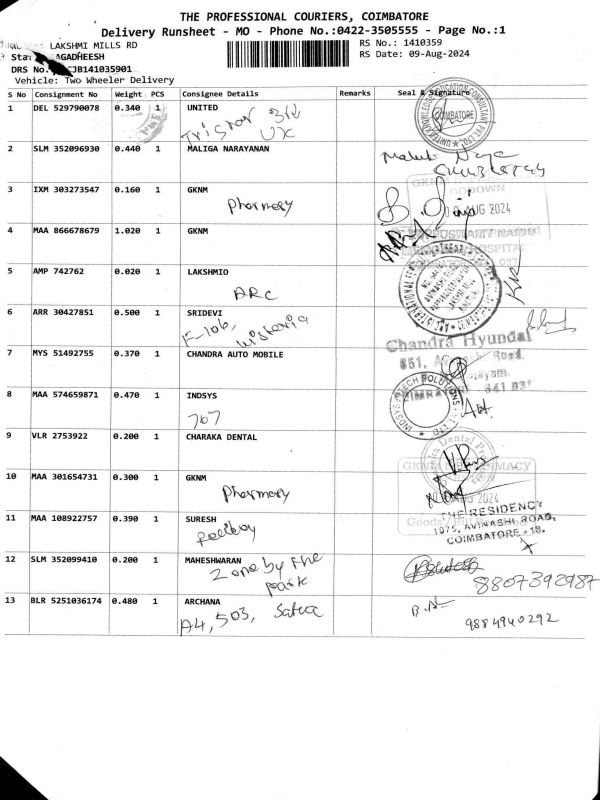 THE PROFESSIONAL COURIERS, COIMBATORE
Delivery Runsheet - MO - Phone No.:0422-3505555 - Page No.:1
LAKSHMI MILLS RD
RS No.: 1410359
Sta: AGADHEESH
RS Date: 09-Aug-2024
DRS No. JB141035901
Vehicle: Two Wheeler Delivery
S No Consignment No Weight PCS Consignee Details Remarks Seal & Signature
1 DEL 529790078 0.340 1 UNITED
COIMBATORE
2 SLM 352096930 0.440 1 MALIGA NARAYANAN
3 IXM 303273547 0.160 1 GKNM
Pharmacy
GODOWN
AUG 2024
4 MAA 866678679 1.020 1 GKNM
5 AMP 742762 0.020 1 LAKSHMIO
ARC
6 ARR 30427851 0.500 1 SRIDEVI
F-106,
Wisteria
Chandra Hyundai
7 MYS 51492755 0.370 1 CHANDRA AUTO MOBILE
851, Road.
8 MAA 574659871 0.470 1 INDSYS
767
9 VLR 2753922 0.200 1 CHARAKA DENTAL
10 MAA 301654731 0.300 1 GKNM
Pharmacy
2024
THE RESIDENCY
11 MAA 108922757 0.390 1 SURESH
1075, AVINASHI ROAD,
COIMBATORE - 18.
12 SLM 352099410 0.200 1 MAHESHWARAN
Zone by the
park
8807392987
13 BLR 5251036174 0.480 1 ARCHANA
A4, 503,
9884940292